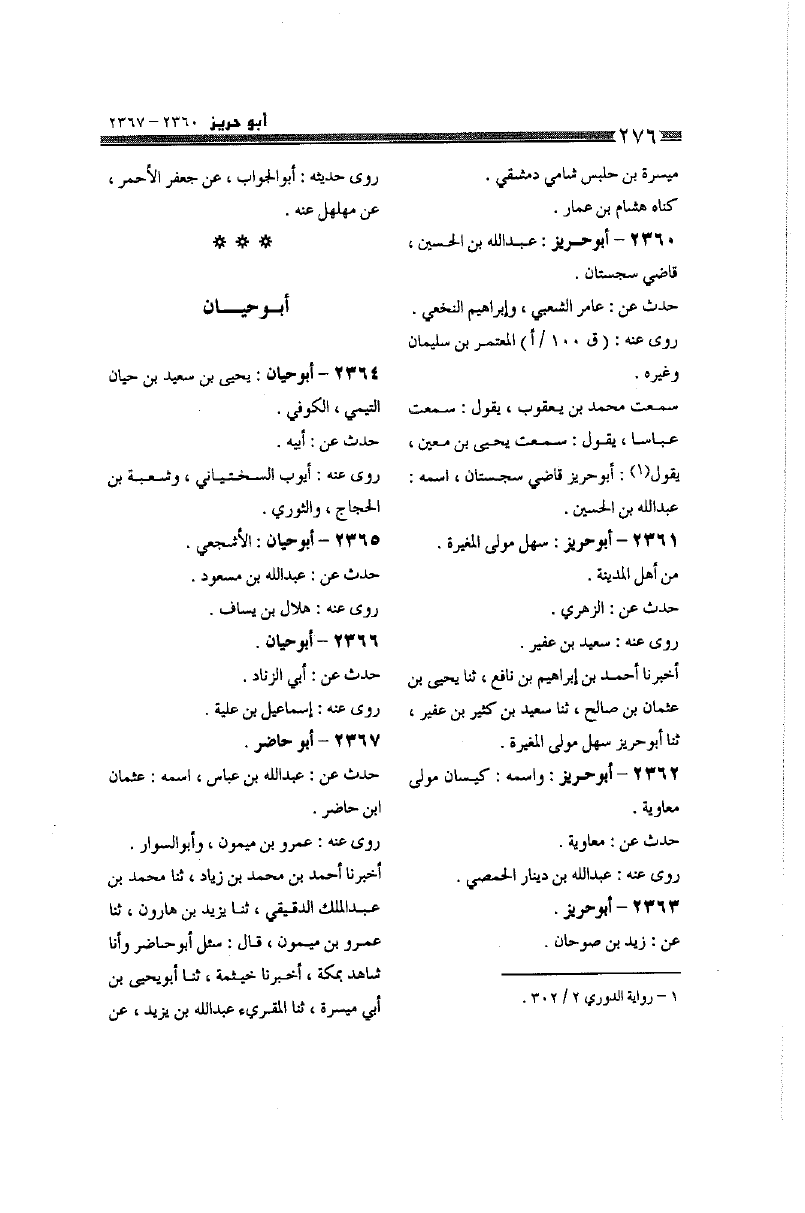 أبو حريز ٢٣٦٠ – ٢٣٦٧
٢٧٦
ميسرة بن حلبس شامي دمشقي .
كناه هشام بن عمار .
٢٣٦٠ – أبوحريز : عبدالله بن الحسين ،
قاضي سجستان .
حدث عن : عامر الشعبي ، وإبراهيم النخعي .
روى عنه : ( ق ١٠٠ / أ ) المعتمر بن سليمان
وغيره .
سمعت محمد بن يعقوب ، يقول : سمعت
عباسا ، يقول : سمعت يحيى بن معين ،
يقول(١) : أبوحريز قاضي سجستان ، اسمه :
عبدالله بن الحسين .
٢٣٦١ – أبوحريز : سهل مولى المغيرة .
من أهل المدينة .
حدث عن : الزهري .
روى عنه : سعيد بن عفير .
أخبرنا أحمد بن إبراهيم بن نافع ، ثنا يحيى بن
عثمان بن صالح ، ثنا سعيد بن كثير بن عفير ،
ثنا أبوحريز سهل مولى المغيرة .
٢٣٦٢ – أبوحريز : واسمه : كيسان مولى
معاوية .
حدث عن : معاوية .
روى عنه : عبدالله بن دينار الحمصي .
٢٣٦٣ – أبوحريز .
عن : زيد بن صوحان .
١ – رواية الدوري ٢ / ٣٠٢ .
روى حديثه : أبوالجواب ، عن جعفر الأحمر ،
عن مهلهل عنه .
* * *
أبوحيان
٢٣٦٤ – أبوحيان : يحيى بن سعيد بن حيان
التيمي ، الكوفي .
حدث عن : أبيه .
روى عنه : أيوب السختياني ، وشعبة بن
الحجاج ، والثوري .
٢٣٦٥ – أبوحيان : الأشجعي .
حدث عن : عبدالله بن مسعود .
روى عنه : هلال بن يساف .
٢٣٦٦ – أبوحيان .
حدث عن : أبي الزناد .
روى عنه : إسماعيل بن علية .
٢٣٦٧ – أبو حاضر .
حدث عن : عبدالله بن عباس ، اسمه : عثمان
ابن حاضر .
روى عنه : عمرو بن ميمون ، وأبوالسوار .
أخبرنا أحمد بن محمد بن زياد ، ثنا محمد بن
عبدالملك الدقيقي ، ثنا يزيد بن هارون ، ثنا
عمرو بن ميمون ، قال : سئل أبوحاضر وأنا
شاهد بمكة ، أخبرنا خيثمة ، ثنا أبويحيى بن
أبي ميسرة ، ثنا المقريء عبدالله بن يزيد ، عن